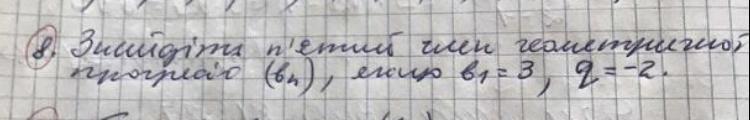 8. Знайдіть п'ятий член геометричної
прогресії (bn), якщо b1 = 3, q = -2.